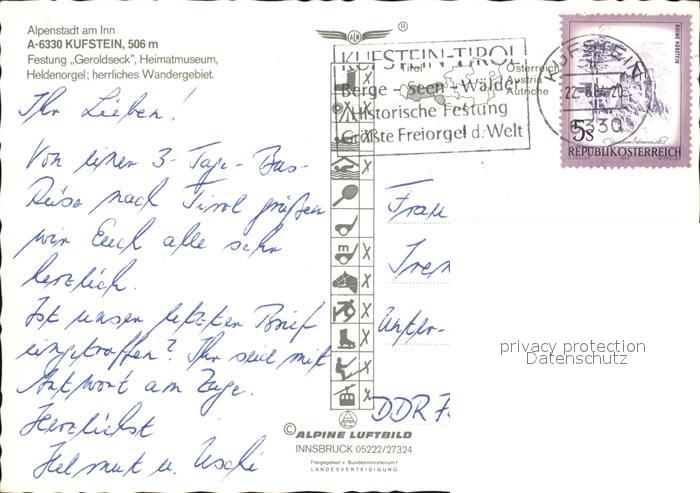 Alpenstadt am Inn
A-6330 KUFSTEIN, 506 m
Festung „Geroldseck", Heimatmuseum,
Heldenorgel; herrliches Wandergebiet.
Ihr Lieben!
Von einer 3-Tage-Bus-
Reise nach Tirol grüßen
wir Euch alle sehr
herzlich.
Ist unser letzter Brief
eingetroffen? Ihr seid mit
Antwort am Zuge.
Herzlichst
Helmut u. Uschi
ALW
®
KUFSTEIN-TIROL
Berge - Seen - Wälder
Historische Festung
Größte Freiorgel d. Welt
Tirol
Österreich
Austria
Autriche
KUFSTEIN
6330
RUINE AGGSTEIN
5s
REPUBLIK ÖSTERREICH
m
Frau
Unter-
DDR 7
privacy protection
Datenschutz
© ALPINE LUFTBILD
INNSBRUCK 05222/27324
Freigegeben v. Bundesministerium f.
LANDESVERTEIDIGUNG